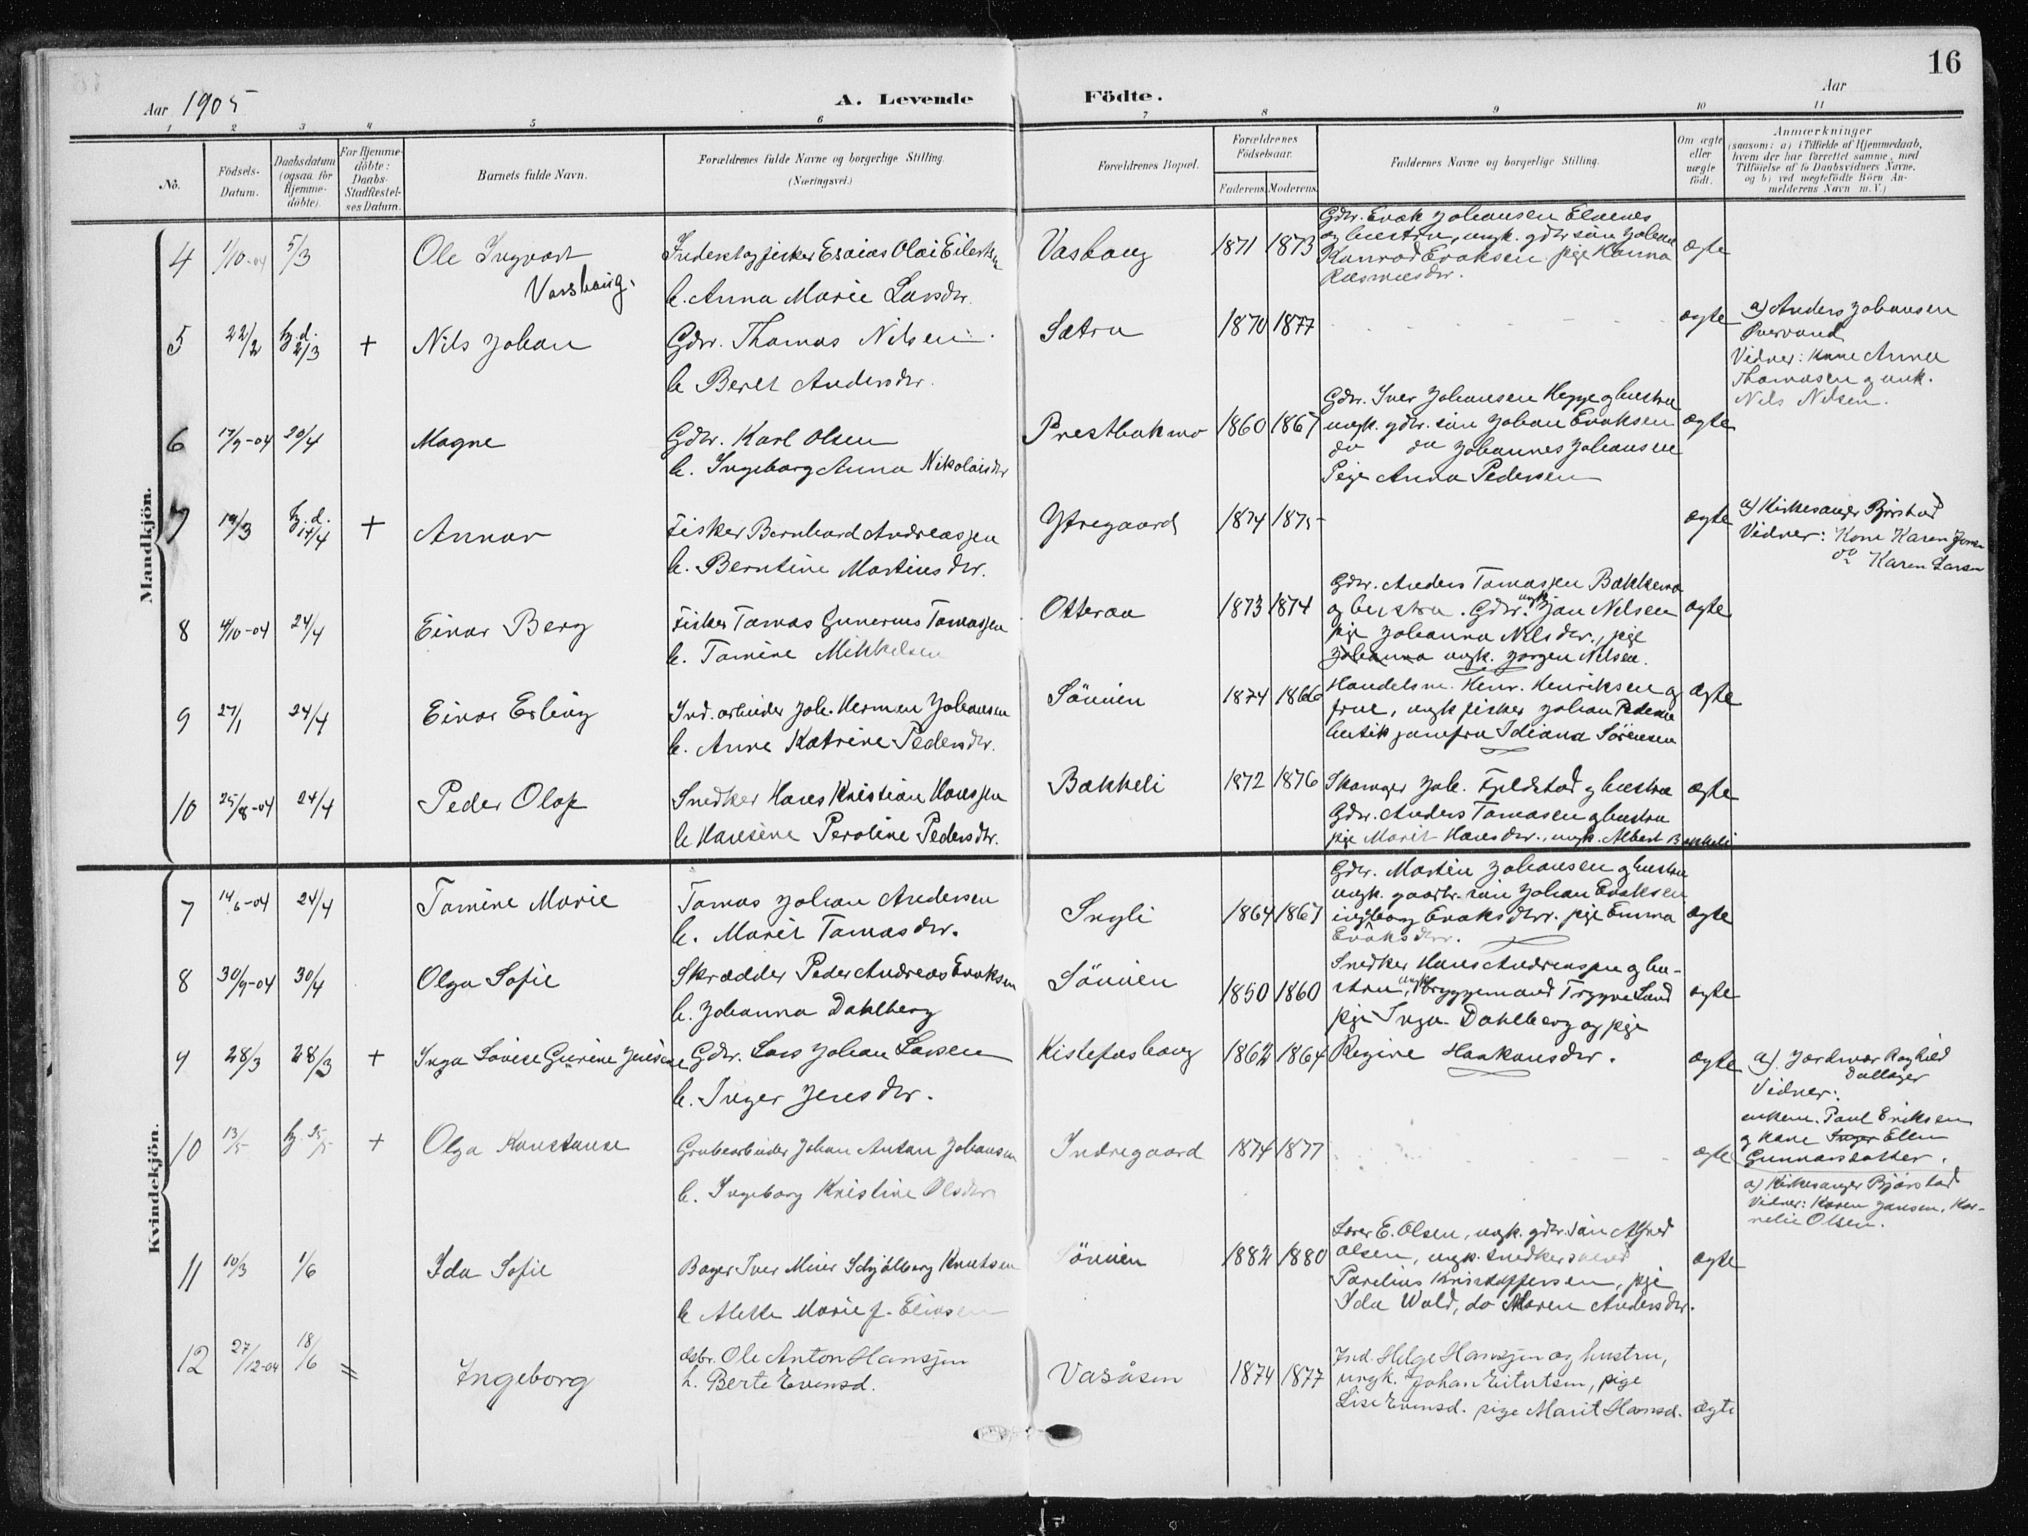 16
Aar 1905
A. Levende Födte.
Aar
1 2 3 4 5 6 7 8 9 10 11
No.
Födsels-Datum.
Daabsdatum (ogsaa for Hjemme-döbte).
For Hjemme-döbte: Daabs-Stadfæstel-ses Datum.
Barnets fulde Navn.
Forældrenes fulde Navne og borgerlige Stilling. (Næringsvei.)
Forældrenes Bopæl.
Forældrenes Födselsaar.
Faderens. Moderens.
Faddernes Navne og borgerlige Stilling.
Om ægte eller uægte födt.
Anmærkninger
(saasom: a) i Tilfælde af Hjemmedaab, hvem der har forrettet samme, med Tilföielse af to Daabsvidners Navne. og b) ved uægtefödte Börn An-melderens Navn m. V.)
Mandkjön.
4 1/10-04 5/3 Ole Ingvart Vassbang.
Inderst og fisker Esaias Olai Eilertsen
h. Anna Marie Larsdtr.
Vasbang 1871 1873
Gdbr. Evak Johansen
og hustru, ungk. gdbr søn Johan
Konrad Evaksen pige Hanna
Rasmusdtr.
ægte
5 22/2 hj.d. 2/3 + Nils Johan
Gdbr. Thomas Nilsen
h. Beret Andersdtr.
Sætra 1870 1877
ægte
a) Anders Johansen
Vidner: Kone Anna
Thomasen og unk.
Nils Nilsen.
6 17/9-04 20/4 Magne
Gdbr. Karl Olsen
h. Ingeborg Anna Nikolaisdtr
Prestbakmo 1860 1867
Gdbr. Iver Johansen Hegge og hustru
ungk. gdbr. søn Johan Evaksen
do do Johannes Johansen
Pige Anna Pedersen
ægte
7 19/3 hj.d. 14/4 + Annar
Fisker Bernhard Andreassen
h. Berntine Martinsdtr.
Ytregaard 1874 1875
ægte
a) Kirkesanger Bjørstad
Vidner: Kone Karen Jensen
do Karen Larsen
8 4/10-04 24/4 Einar Berg
Fisker Tomas Gunerius Tomassen
h. Tomine Mikkelsen
Otteraa 1873 1874
Gdbr. Anders Tomassen Bakkemo
og hustru. Gdbr. ungk. Jan Nilsen
pige Johanna Nilsdtr., pige
Johanna ungk. Jørgen Nilsen.
ægte
9 27/1 24/4 Einar Erling
Ind. arbeider Joh. Herman Johansen
h. Anne Katrine Pedersdtr.
Sövien 1874 1866
Handelsm. Henr. Henriksen og
frue, ungk fisker Johan Pedersen
butikjomfru Idiana Sörensen
ægte
10 25/8-04 24/4 Peder Olaf
Snedker Hans Kristian Hanssen
h Hansine Peroline Pedersdtr.
Bakkeli 1872 1876
Skomager Joh. Fjeldstad og hustru
Gdbr. Anders Tomassen og hustru
pige Marit Hansdtr., ungk. Albert Bakkeli
ægte
Kvindekjön.
7 14/6-04 24/4 Tomine Marie
Tomas Johan Andersen
h. Marit Tomasdtr.
Ingli 1864 1867
Gdbr. Martin Johansen og hustru
ungk. gaardbr. søn Johan Evaksen
Ingeborg Evaksdtr. pige Emma
Evaksdtr.
ægte
8 30/9-04 30/4 Olga Sofie
Skrædder Peder Andreas Evaksen
h. Johanna Dahlberg
Sövien 1850 1860
Snedker Hans Andreassen og hu-
stru, ungk. bryggemand Trygve Lund
pige Inga Dahlberg og pige
Regine Haakonsdtr.
ægte
9 28/3 28/3 + Inga Lovise Gurine Jensine
Gdbr. Lars Johan Larsen
h. Inger Jensdtr.
Kistefosbang 1862 1864
ægte
a) Jordmor Raghild
Dallager
Vidner:
enkem. Paul Eriksen
og kone Inger Ellen
Gunnarsdatter.
10 13/5 hj. 25/5 + Olga Konstanse
Grubearbeider Johan Antan Johansen
h. Ingeborg Kristine Olsdtr
Indregaard 1874 1877
ægte
a) Kirkesanger Bjørstad
Vidner: Karen Jansen, Kor-
nelie Olsen.
11 10/3 1/6 Ida Sofie
Bager Iver Meier Schjölberg Knutsen
h. Alette Marie f. Eliasen
Sövien 1882 1880
Lærer E. Olsen, ungk. gdbr. søn Alfred
Olsen, ungk. snedkersvend
Parelius Kristoffersen, pige
Ida Wold, do Maren Andersdtr.
ægte
12 27/12-04 18/6 Ingeborg
gsbr. Ole Anton Hanssen
h. Berte Evensd.
Vasåsen 1874 1877
Ind. Helge Hanssen og hustru,
ungk. Johan Eilertsen, pige
Lise Evensd. pige Marit Hansd.
ægte